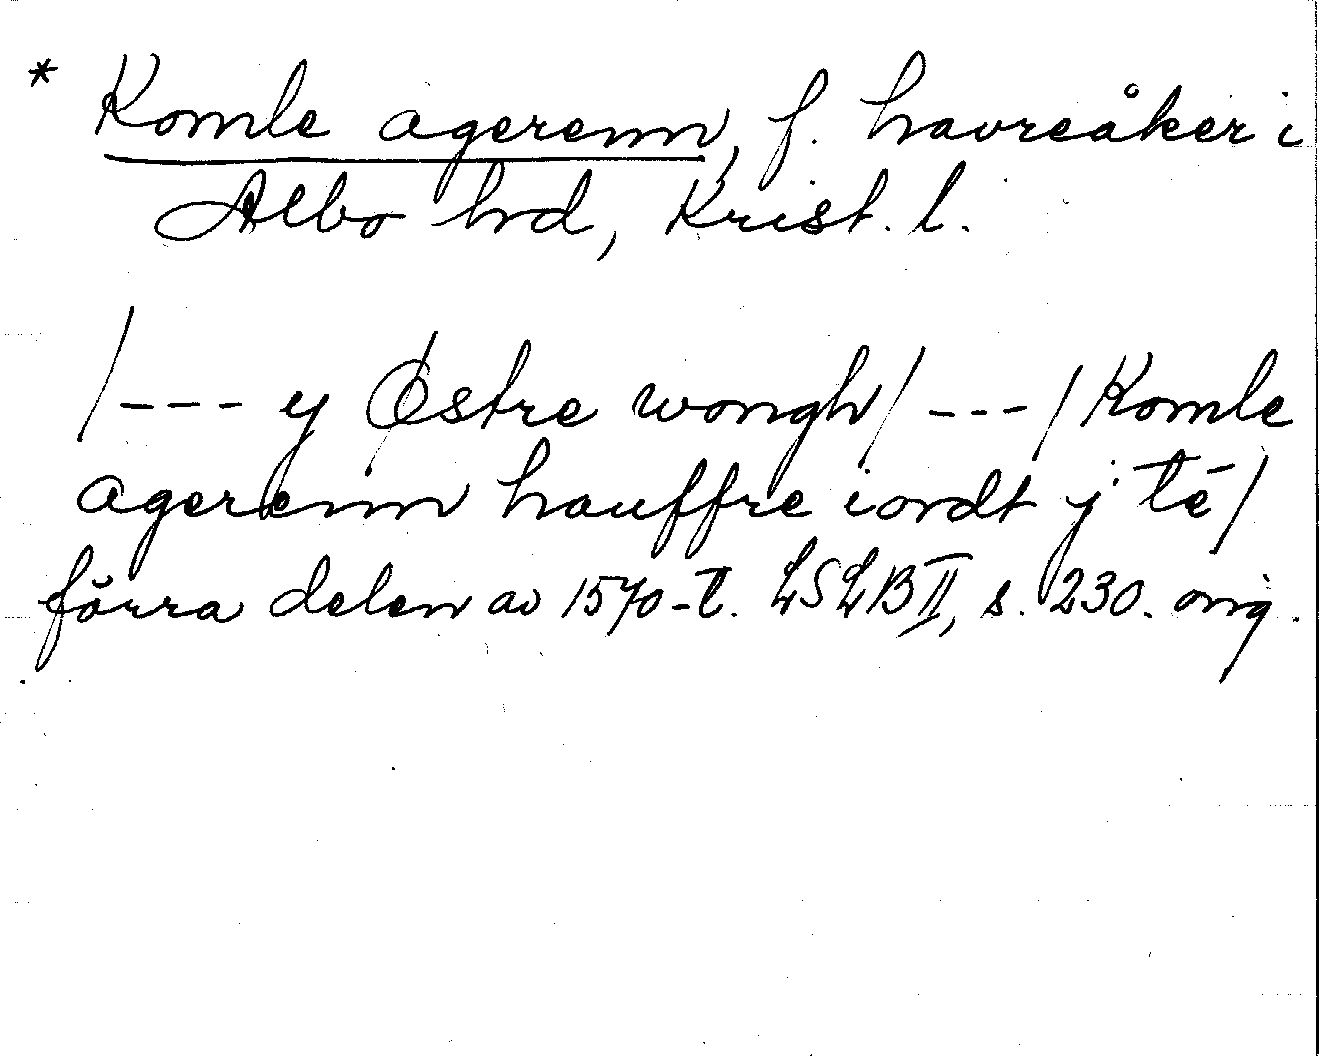 * Komle agerenn, f. havreåker i
Albo hrd, Krist. l.
/--- y Østre wongh/ ---/ Komle
agerenn hauffre iordt j tē/
förra delen av 1570-t. LSLB II, s. 230. orig.